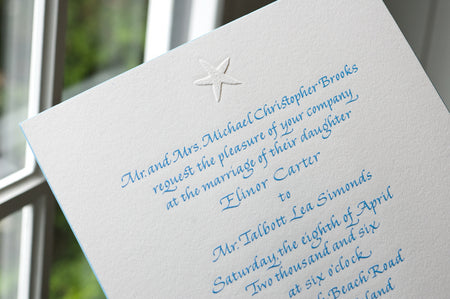 Mr. and Mrs. Michael Christopher Brooks
request the pleasure of your company
at the marriage of their daughter
Elinor Carter
to
Mr. Talbott Lea Simonds
Saturday, the eighth of April
Two thousand and six
at six o'clock
Beach Road